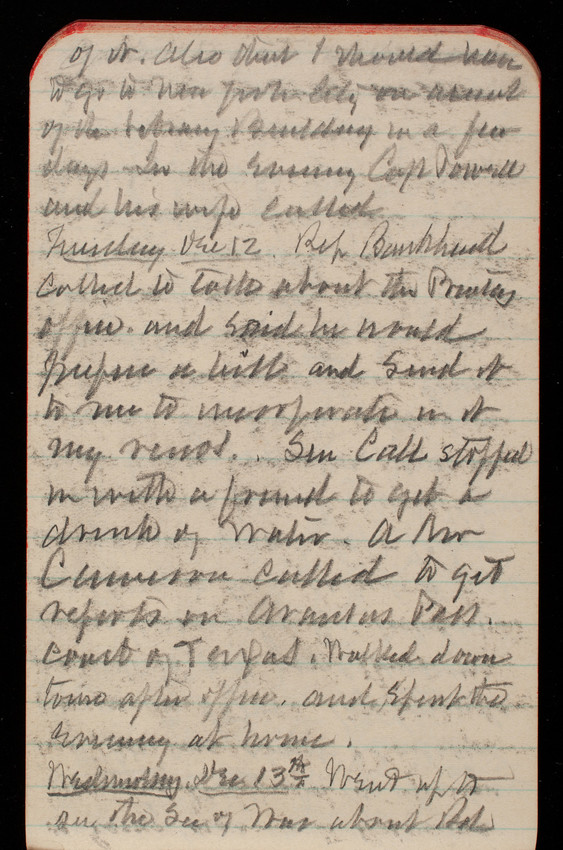 of it. Also that I should have
to go to New York City on account
of the Library Building in a few
days In the evening Capt Powell
and his wife called
Tuesday Dec 12. Rep Bankhead
called to talk about the Printing
office. and said he would
prepare a bill and send it
to me to incorporate in it
my views. Sen Call stopped
in with a friend to get a
drink of water. A Mr
Cameron called to get
reports on Aransas Pass.
coast of Texas. Walked down
town after office. and spent the
evening at home.
Wednesday Dec 13th Went up to
see the Sec of War about